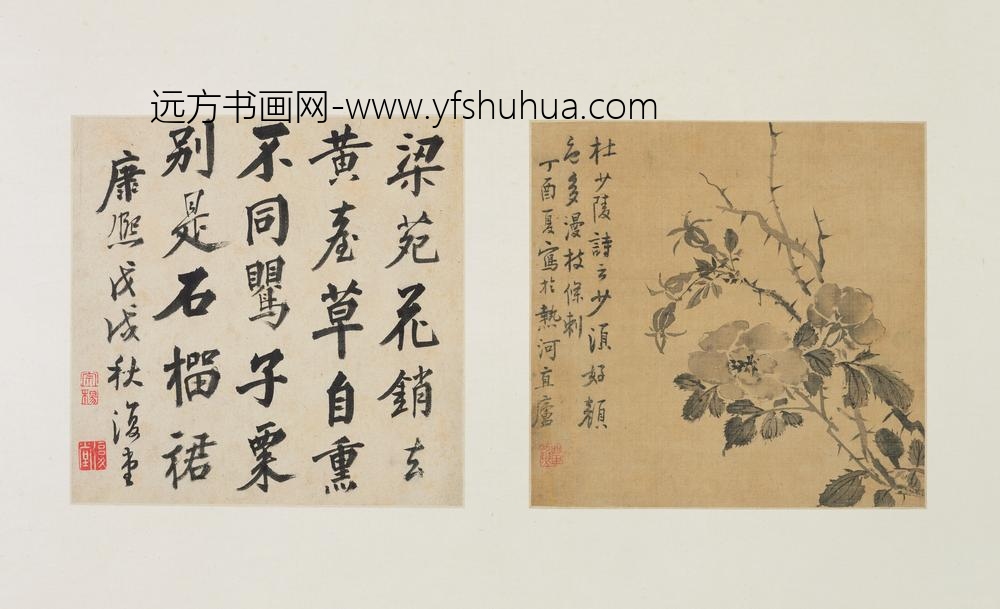 远方书画网-www.yfshuhua.com
杜少陵詩云少須好顏
色多漫枝條刺
丁酉夏寫於熱河直廬
梁苑花銷去
黄臺草自熏
不同罌子粟
别是石榴裙
康熙戊戌秋復堂
復堂